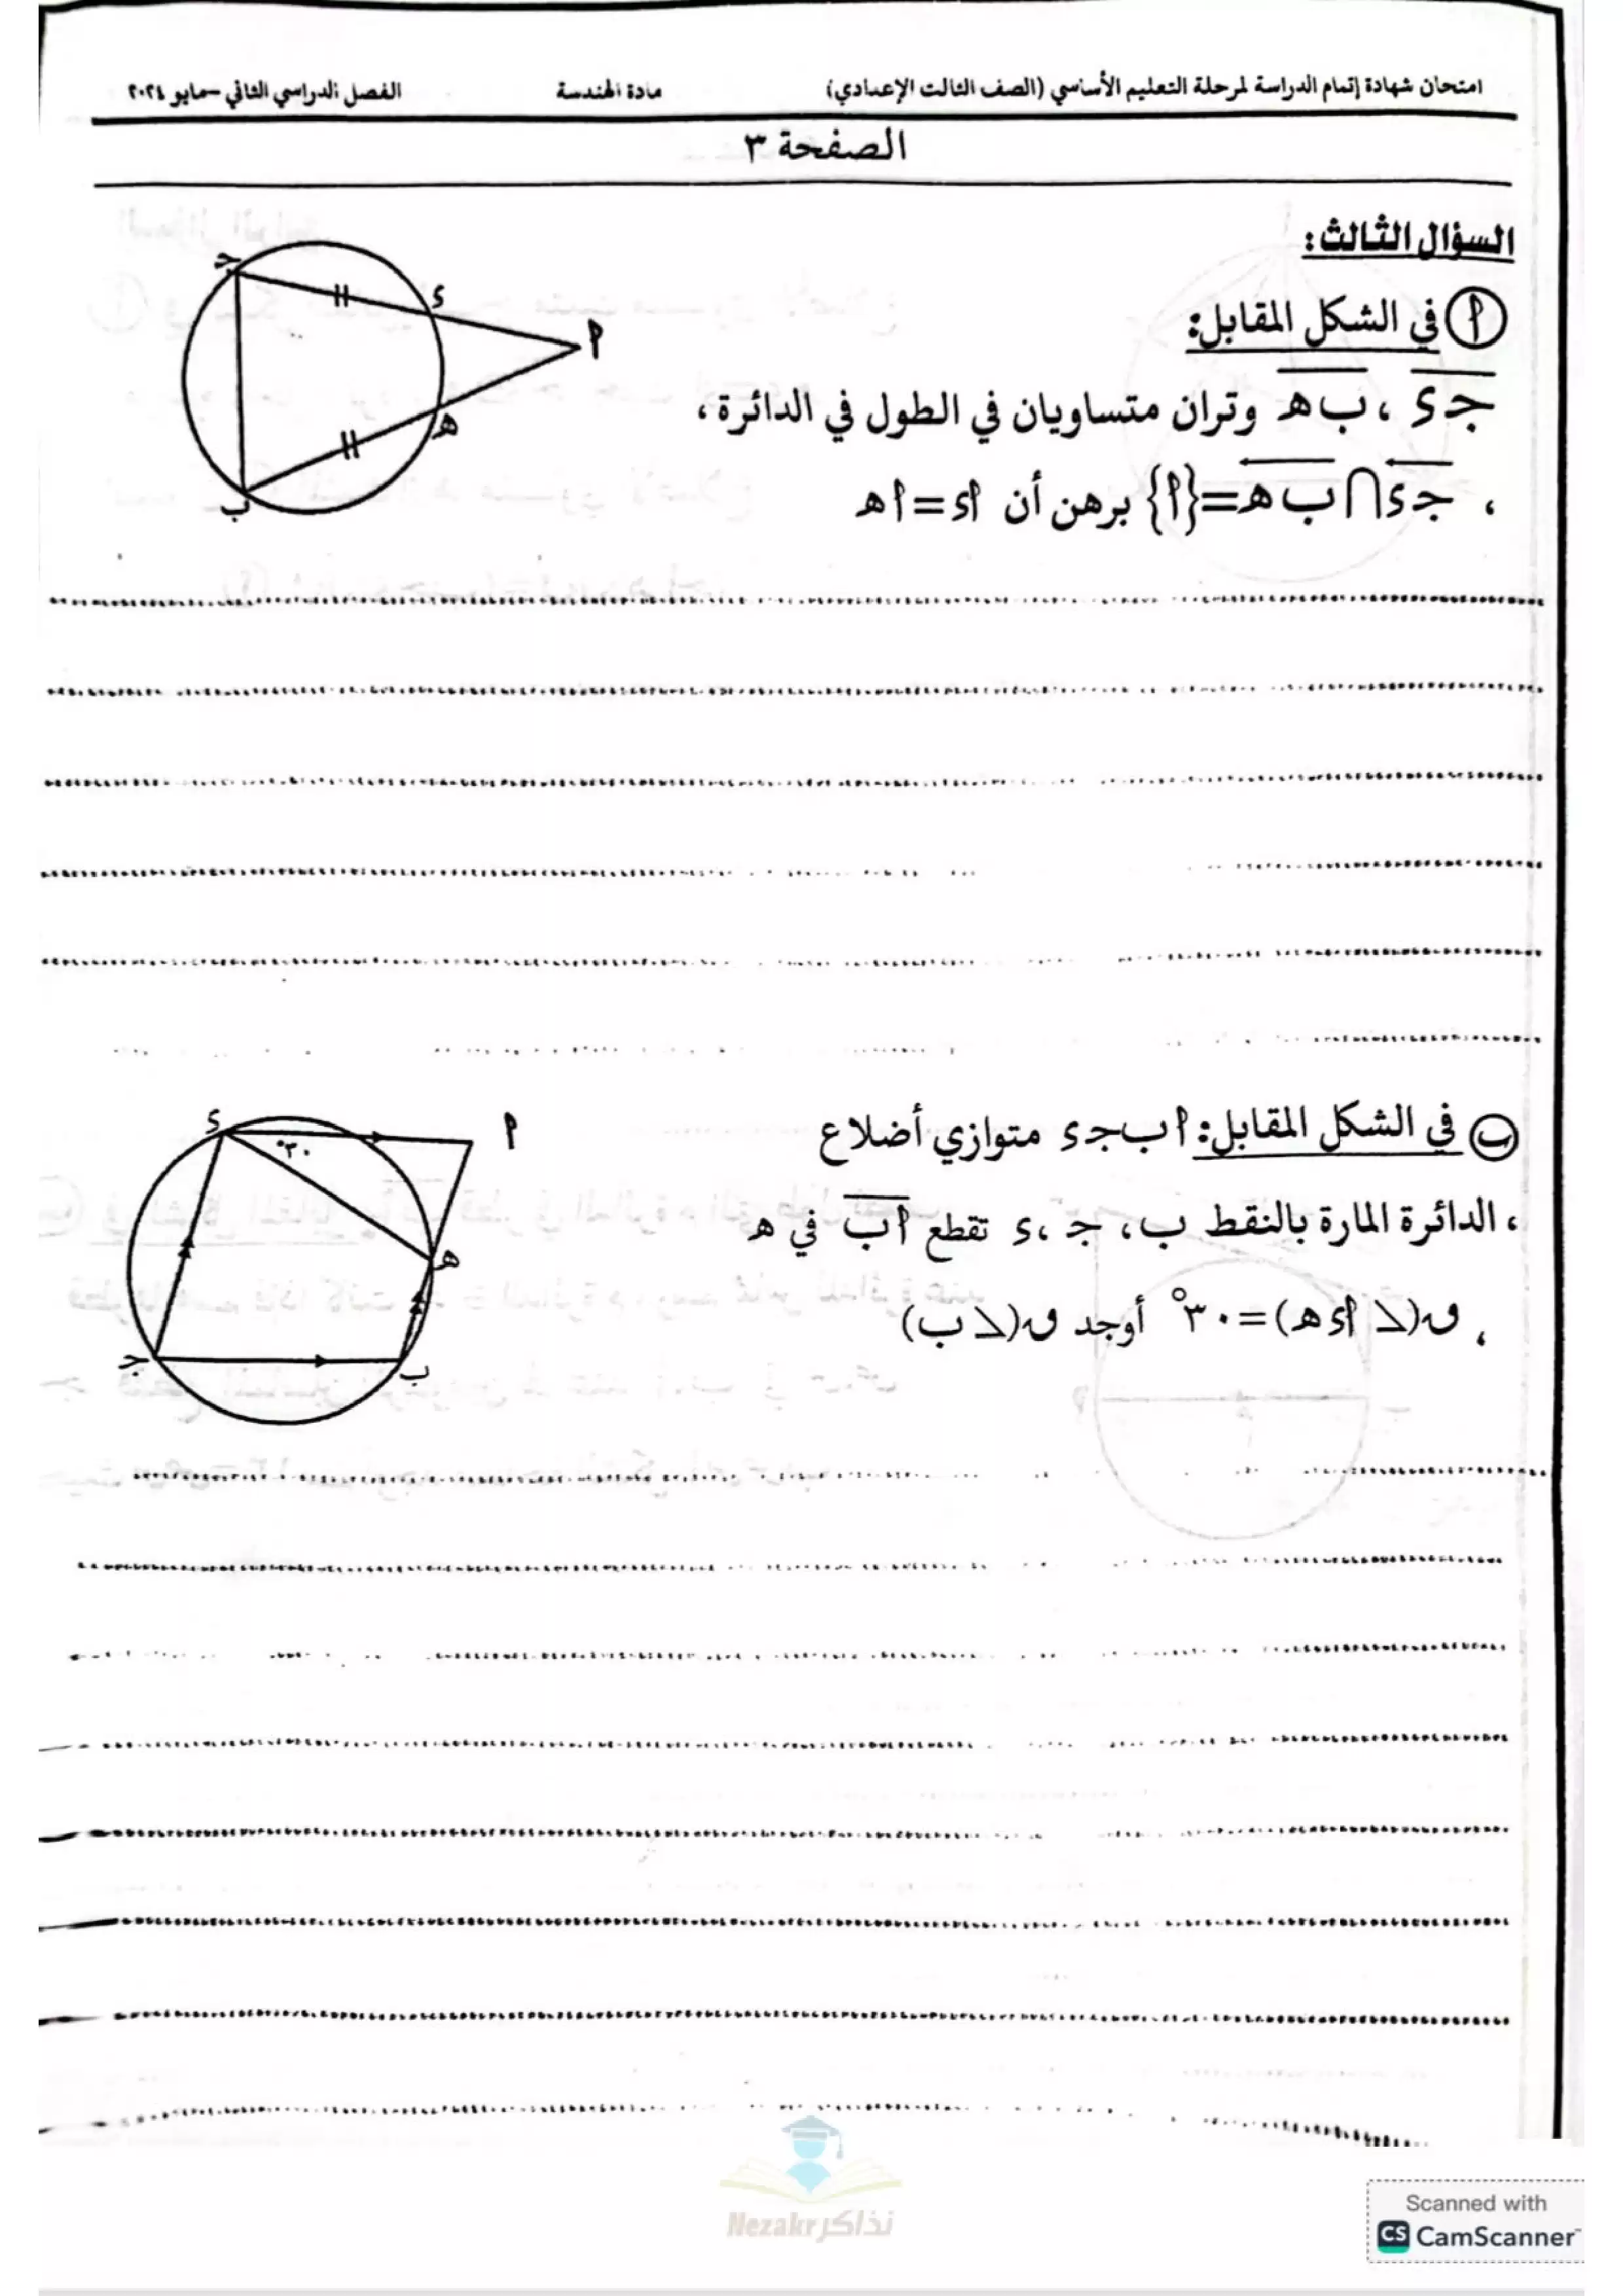 امتحان شهادة إتمام الدراسة لمرحلة التعليم الأساسي (الصف الثالث الإعدادي) مادة الهندسة الفصل الدراسي الثاني – مايو ٢٠٢٤
الصفحة ٣
السؤال الثالث:
أ في الشكل المقابل:
جـ د ، ب هـ وتران متساويان في الطول في الدائرة ،
، جـ د ∩ ب هـ = {أ} برهن أن أ د = أ هـ
جـ
د
أ
هـ
ب
ب في الشكل المقابل: أ ب جـ د متوازي أضلاع
، الدائرة المارة بالنقط ب ، جـ ، د تقطع أ ب في هـ
، ق(∠ أ د هـ) = ٣٠° أوجد ق(∠ ب)
د
أ
٣٠°
هـ
جـ
ب
Nezakr نذاكر
Scanned with
CS CamScanner